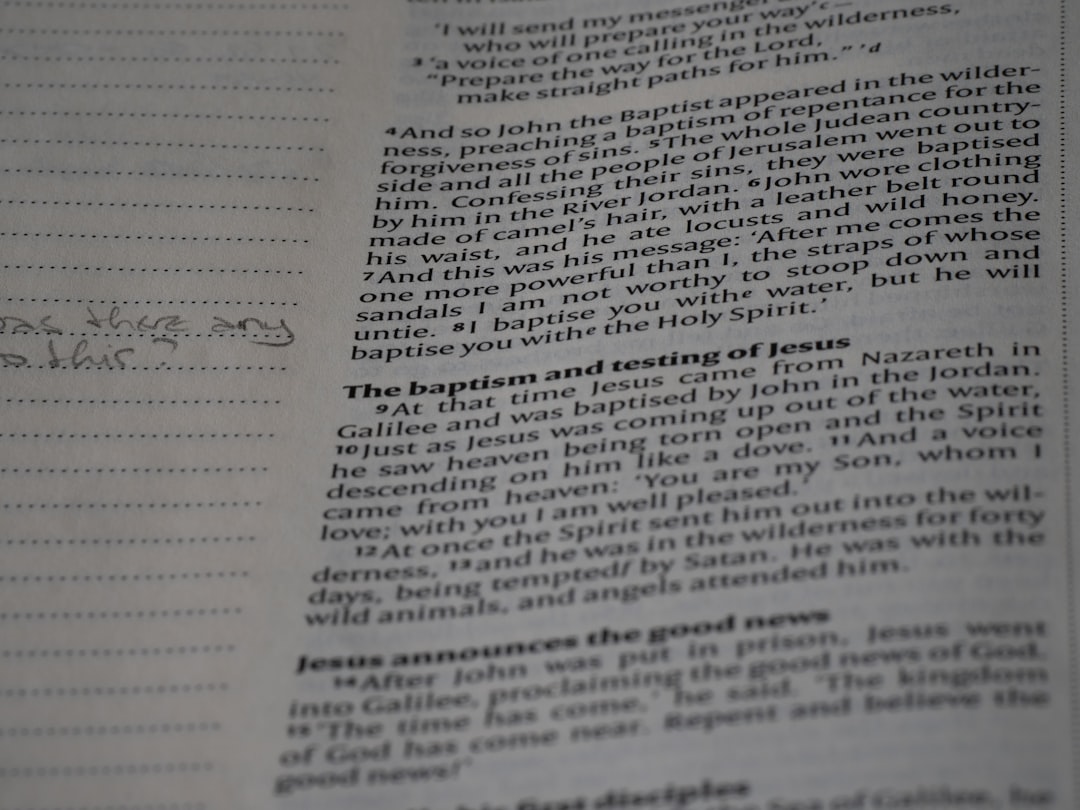 'I will send my messenger
who will prepare your way'c —
3 'a voice of one calling in the wilderness,
"Prepare the way for the Lord,
make straight paths for him." 'd
4 And so John the Baptist appeared in the wilder-
ness, preaching a baptism of repentance for the
forgiveness of sins. 5 The whole Judean country-
side and all the people of Jerusalem went out to
him. Confessing their sins, they were baptised
by him in the River Jordan. 6 John wore clothing
made of camel's hair, with a leather belt round
his waist, and he ate locusts and wild honey.
7 And this was his message: 'After me comes the
one more powerful than I, the straps of whose
sandals I am not worthy to stoop down and
untie. 8 I baptise you withe water, but he will
baptise you withe the Holy Spirit.'
there any
this?
The baptism and testing of Jesus
9 At that time Jesus came from Nazareth in
Galilee and was baptised by John in the Jordan.
10 Just as Jesus was coming up out of the water,
he saw heaven being torn open and the Spirit
descending on him like a dove. 11 And a voice
came from heaven: 'You are my Son, whom I
love; with you I am well pleased.'
12 At once the Spirit sent him out into the wil-
derness, 13 and he was in the wilderness for forty
days, being temptedf by Satan. He was with the
wild animals, and angels attended him.
Jesus announces the good news
14 After John was put in prison, Jesus went
into Galilee, proclaiming the good news of God.
15 'The time has come,' he said. 'The kingdom
of God has come near. Repent and believe the
good news!'
his first disciples